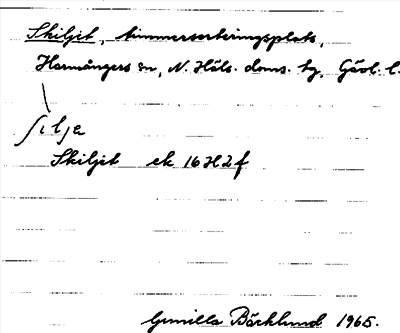 Skiljet, timmersorteringsplats,
Harmångers sn, N. Häls. doms. hg, Gävl. l.
ʃilje
Skiljet ek 16H2f
Gunilla Bäcklund 1965.